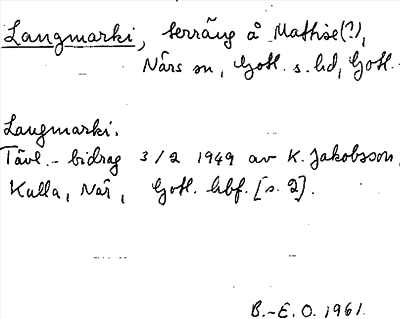 Langmarki, terräng å Mathise(?),
När sn, Gotl. s. hd, Gotl.
Langmarki.
Tävl.-bidrag 3/2 1949 av K. Jakobsson,
Kulla, När, Gotl. hbf. [s. 2].
B.-E. O. 1961.